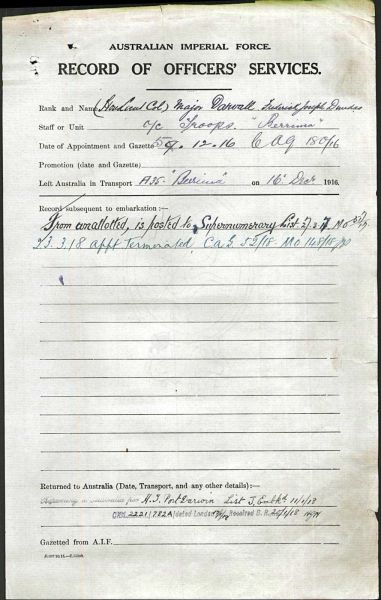 AUSTRALIAN IMPERIAL FORCE.
RECORD OF OFFICERS' SERVICES.
Rank and Name (Hon Lieut Col) Major Darvall Frederick Joseph Dundas
Staff or Unit o/c Troops. "Berrima"
Date of Appointment and Gazette 12.16 C A G 180/16
Promotion (date and Gazette)
Left Australia in Transport A35 "Berrima" on 16 Decr 1916.
Record subsequent to embarkation:—
From unallotted, is posted to Supernumerary List M O
23.3.18 appt Terminated, CAG 55/18. MO 148/18
Returned to Australia (Date, Transport, and any other details):—
Returning to Australia per H.T. Port Darwin List J, Embkd 11/1/18
dated London Received B.R.
Gazetted from A.I.F.